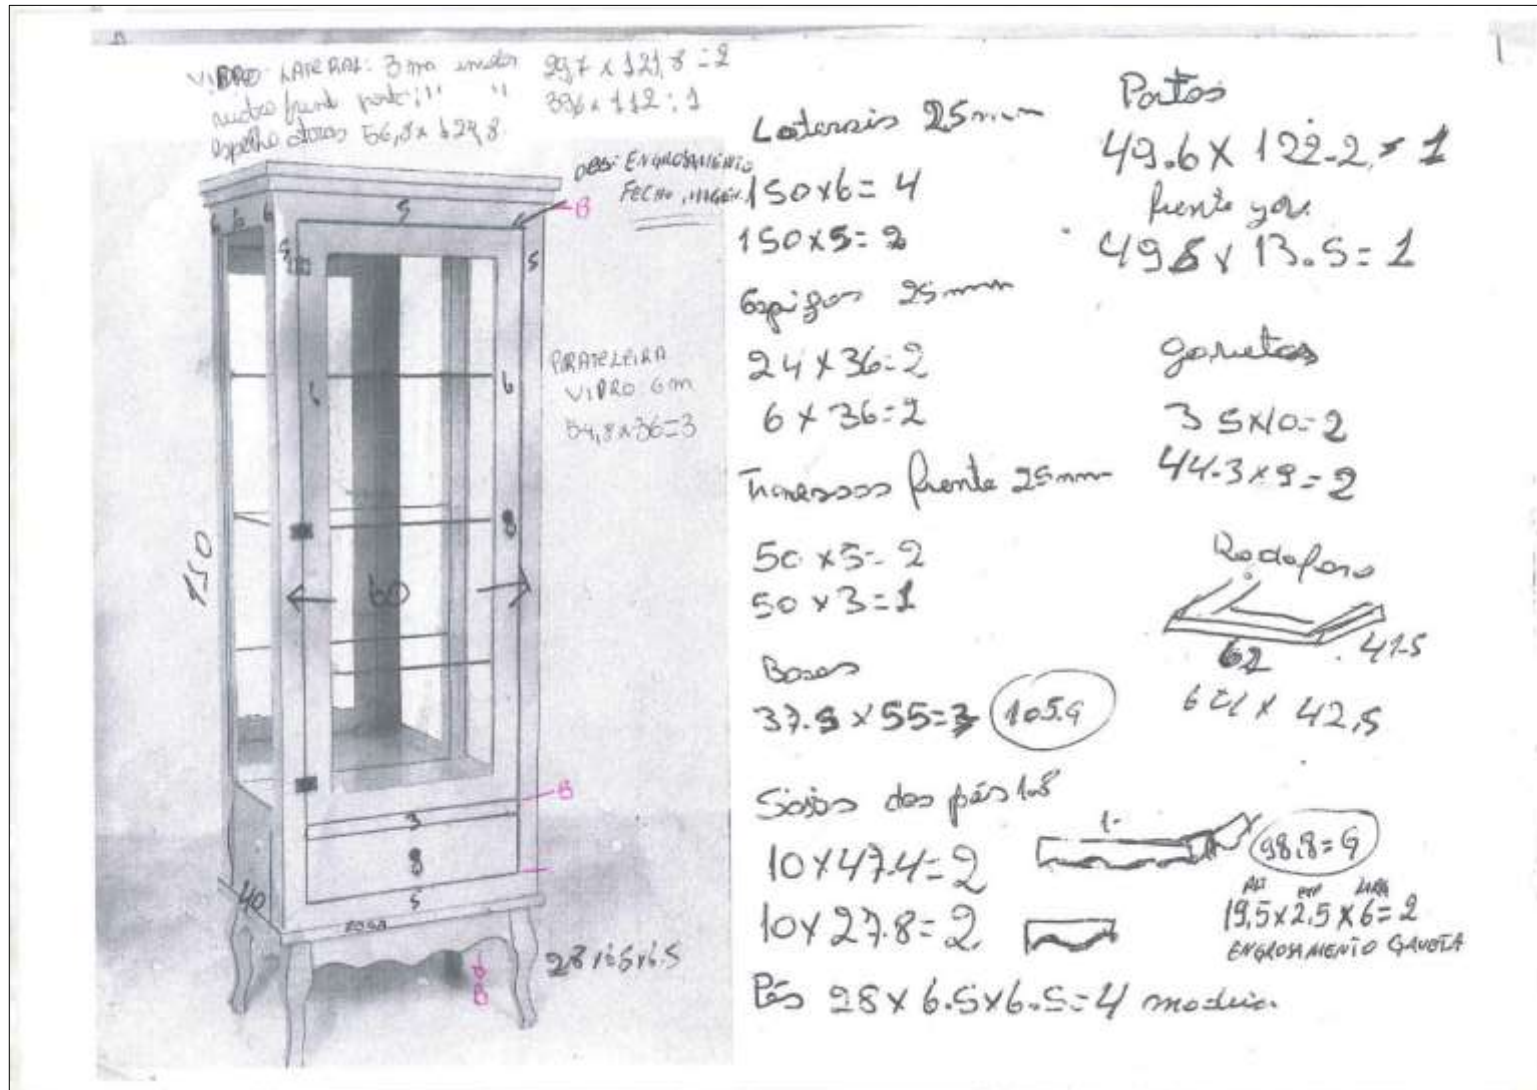 VIDRO LATERAL: 3 m incolor 29,7 x 121,8 = 2
vidro frent porta: " " 39,6 x 112 : 1
espelho atras 56,8 x 124,8
OBS: ENGROSAMENTO
FECHO
B
5
6 6 6
5
5
PRATELEIRA
VIDRO 6 m
54,8 x 36 = 3
6
6
8
150
60
B
3
8
5
40
28 x 6.5 x 6.5
B
Laterais 25 mm
150 x 6 = 4
150 x 5 = 2
Espigas 25 mm
24 x 36 = 2
6 x 36 = 2
Travessas frente 25 mm
50 x 5 = 2
50 x 3 = 1
Bases
37.5 x 55 = 3
105.G
dos pés 1.8
10 x 47.4 = 2
10 x 27.8 = 2
Pés 28 x 6.5 x 6.5 = 4 madeira
Portas
49.6 x 122.2 = 1
frente gav.
49.6 x 13.5 = 1
gavetas
35 x 10 = 2
44.3 x 9 = 2
62
41.5
x 42,5
98.8 = G
ALT ESP LARG
19,5 x 2.5 x 6 = 2
ENGROSAMENTO GAVETA